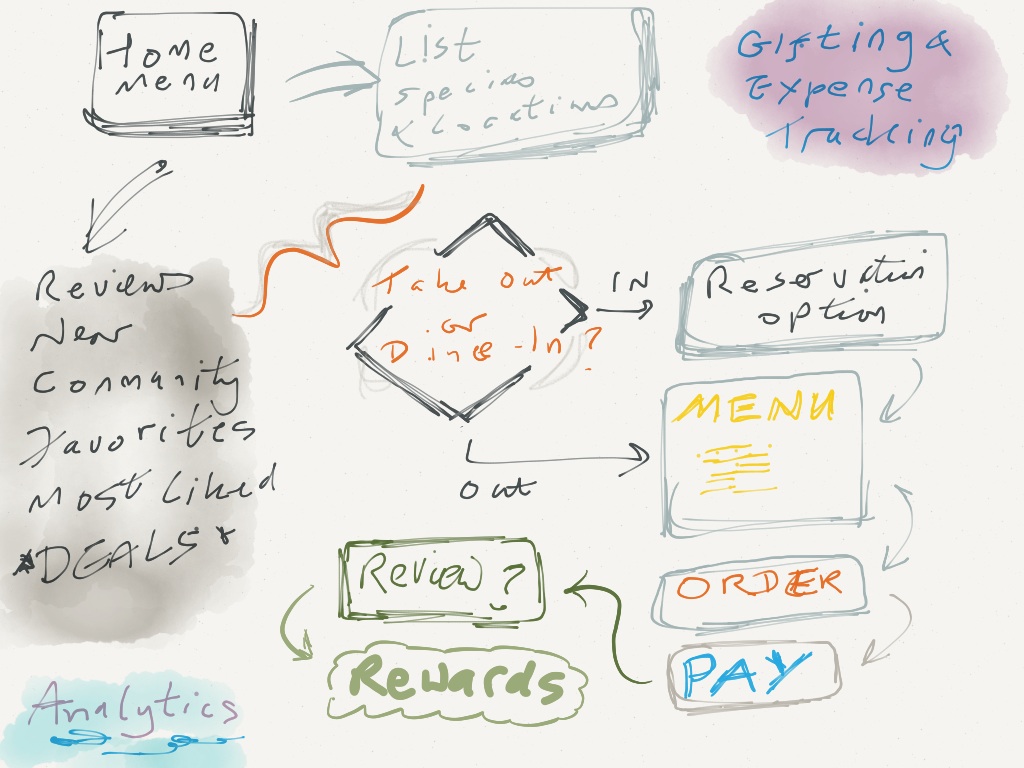 Home
menu
List
specials
& Locations
Gifting &
Expense
Tracking
Reviews
New
Community
Favorites
Most Liked
*DEALS*
Take out
or
Dine-In?
IN
Reservation
option
MENU
out
ORDER
PAY
Review?
Rewards
Analytics